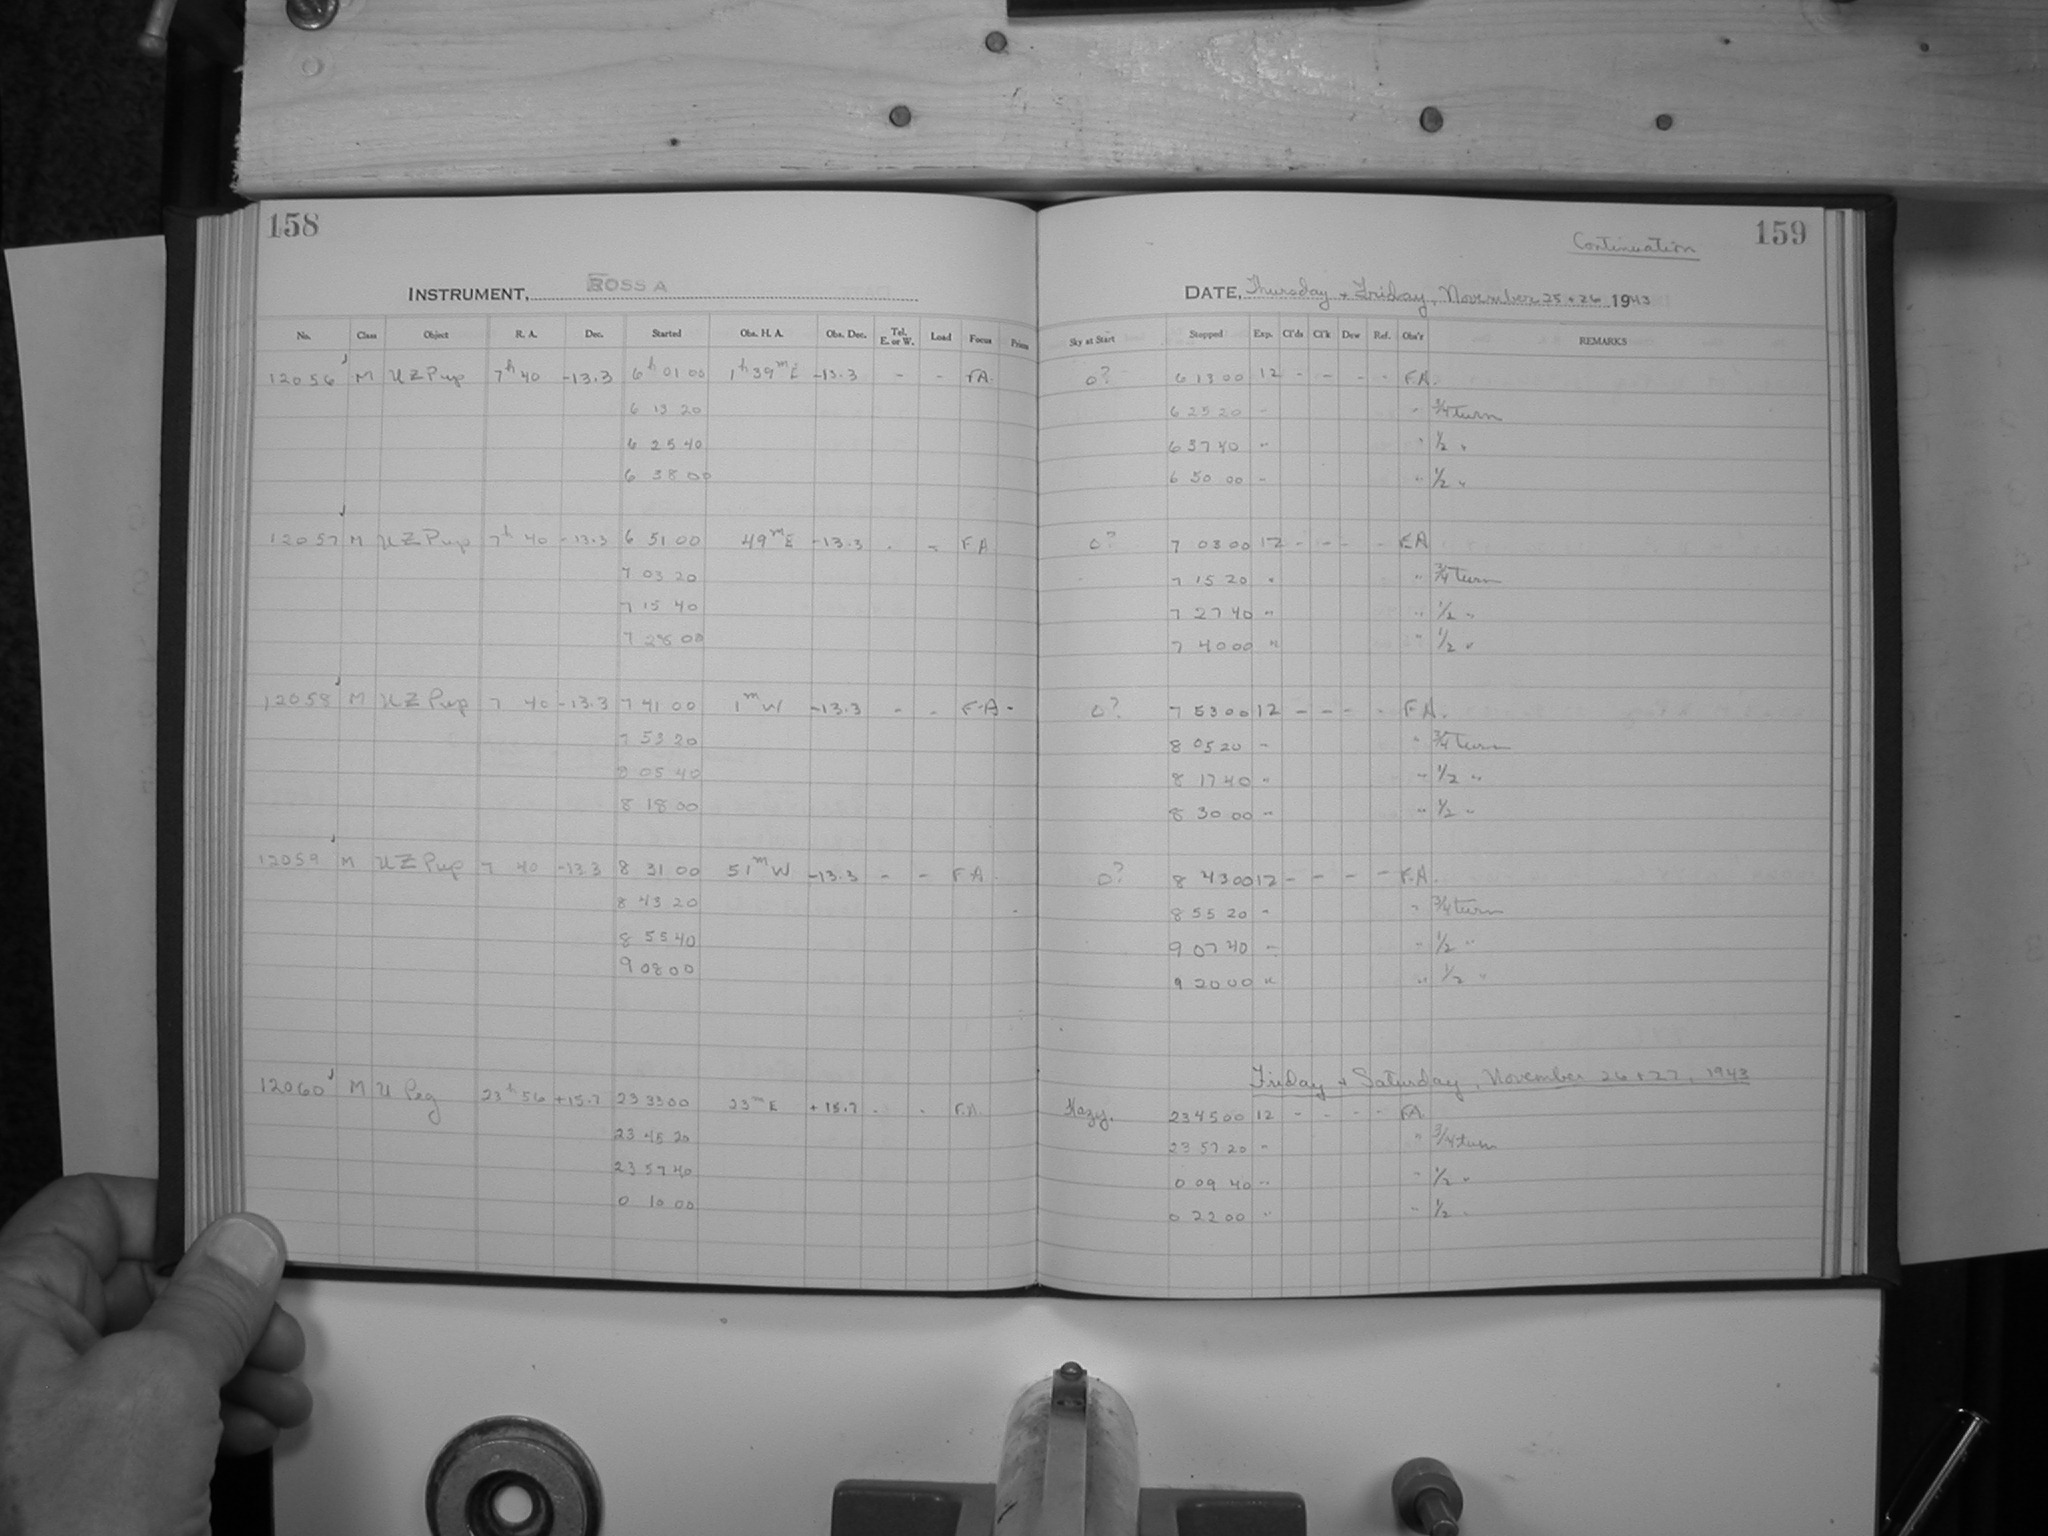 158
INSTRUMENT, ROSS A
No. Class Object R. A. Dec. Started Obs. H. A. Obs. Dec. Tel. E. or W. Load Focus Prism
12056 M UZ Pup 7h 40 -13.3 6h 01 00 1h 39m E -13.3 - - FA.
6 13 20
6 25 40
6 38 00
12057 M UZ Pup 7h 40 -13.3 6 51 00 49m E -13.3 - - FA
7 03 20
7 15 40
7 28 00
12058 M UZ Pup 7 40 -13.3 7 41 00 1m W -13.3 - - F.A-
7 53 20
8 05 40
8 18 00
12059 M UZ Pup 7 40 -13.3 8 31 00 51m W -13.3 - - FA
8 43 20
8 55 40
9 08 00
12060 M U Peg 23h 56 +15.7 23 33 00 23m E +15.7 - - F.A.
23 45 20
23 57 40
0 10 00
Continuation 159
DATE, Thursday + Friday, November 25 + 26 1943
Sky at Start Stopped Exp. Cl'ds Cl'k Dew Ref. Obs'r REMARKS
0? 6 13 00 12 - - - - F.A.
6 25 20 " " 3/4 turn
6 37 40 " " 1/2 "
6 50 00 " " 1/2 "
0? 7 03 00 12 - - - - F.A
7 15 20 " " 3/4 turn
7 27 40 " " 1/2 "
7 40 00 " " 1/2 "
0? 7 53 00 12 - - - - F.A.
8 05 20 " " 3/4 turn
8 17 40 " " 1/2 "
8 30 00 " " 1/2 "
0? 8 43 00 12 - - - - F.A.
8 55 20 " " 3/4 turn
9 07 40 " " 1/2 "
9 20 00 " " 1/2 "
Friday + Saturday, November 26 + 27, 1943
Hazy. 23 45 00 12 - - - - F.A.
23 57 20 " " 3/4 turn
0 09 40 " " 1/2 "
0 22 00 " " 1/2 "